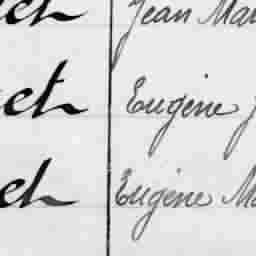 et Jean Mar
et Eugène J
et Eugène Ma